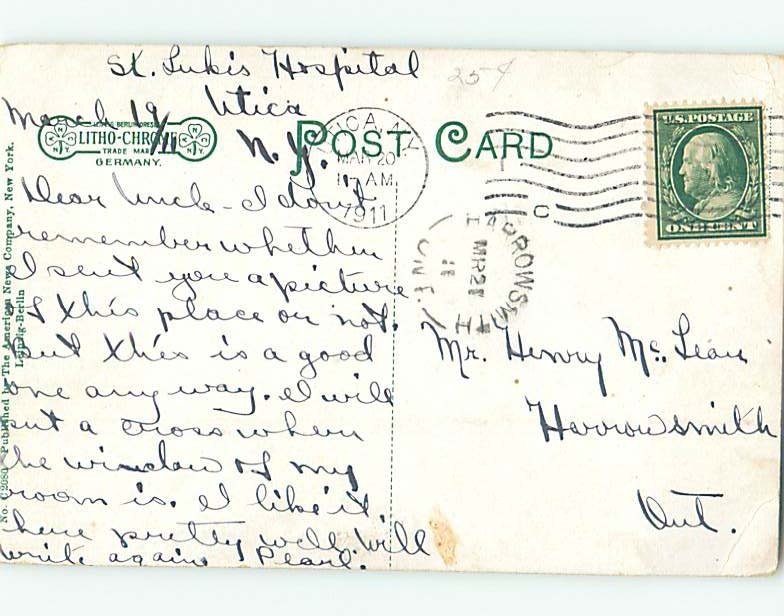 St. Luke's Hospital
25¢
March 19/11 Utica
N.Y.
LITHO-CHROME
TRADE MARK
GERMANY.
POST CARD
UTICA, N.Y.
MAR 20
AM
1911
U.S. POSTAGE
ONE CENT
C
HARROWSMITH
MR 21
11
ONT.
Dear Uncle - I don't
remember whether
I sent you a picture
of this place or not.
But this is a good
one any way. I will
put a cross where
the window of my
room is. I like it
here pretty well. Will
write again Pearl.
Mr. Henry Mc. Lean
Harrowsmith
Ont.
No. C2080 Published by The American News Company, New York.
Leipzig-Berlin